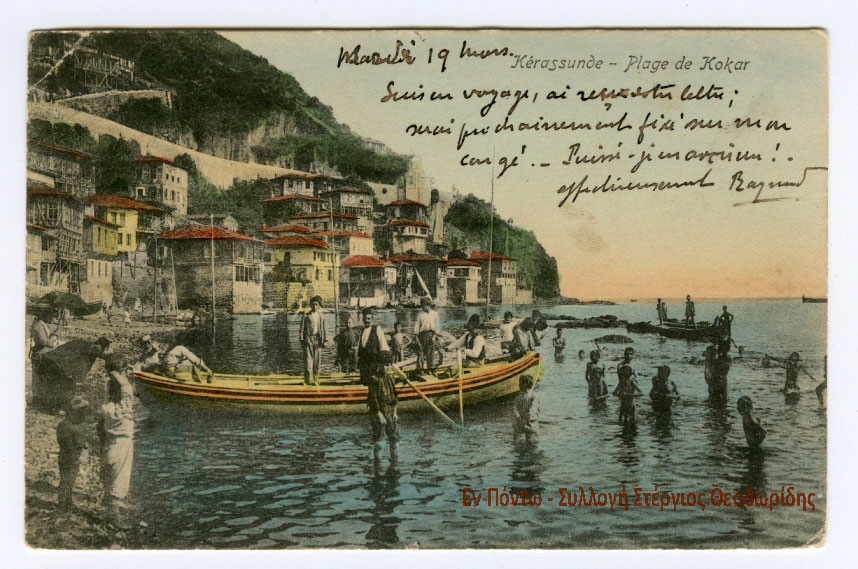 Mardi 19 Mars.
Kérassunde – Plage de Kokar
Suis en voyage, ai reçu votre lettre;
serai prochainement fixé sur mon
congé. –
effectueusement
Εν Πόντω - Συλλογή Στέργιος Θεοδωρίδης